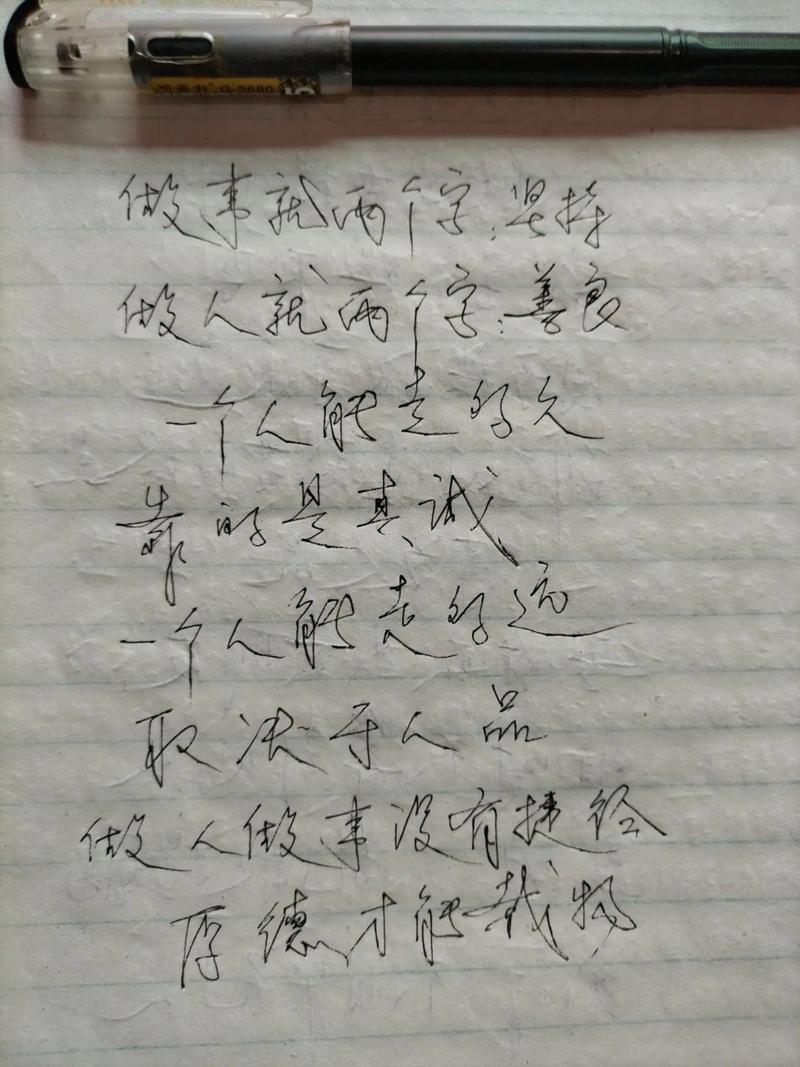 G-5680
做事就两个字:坚持
做人就两个字:善良
一个人能走的久
靠的是真诚
一个人能走的远
取决于人品
做人做事没有捷径
厚德才能载物